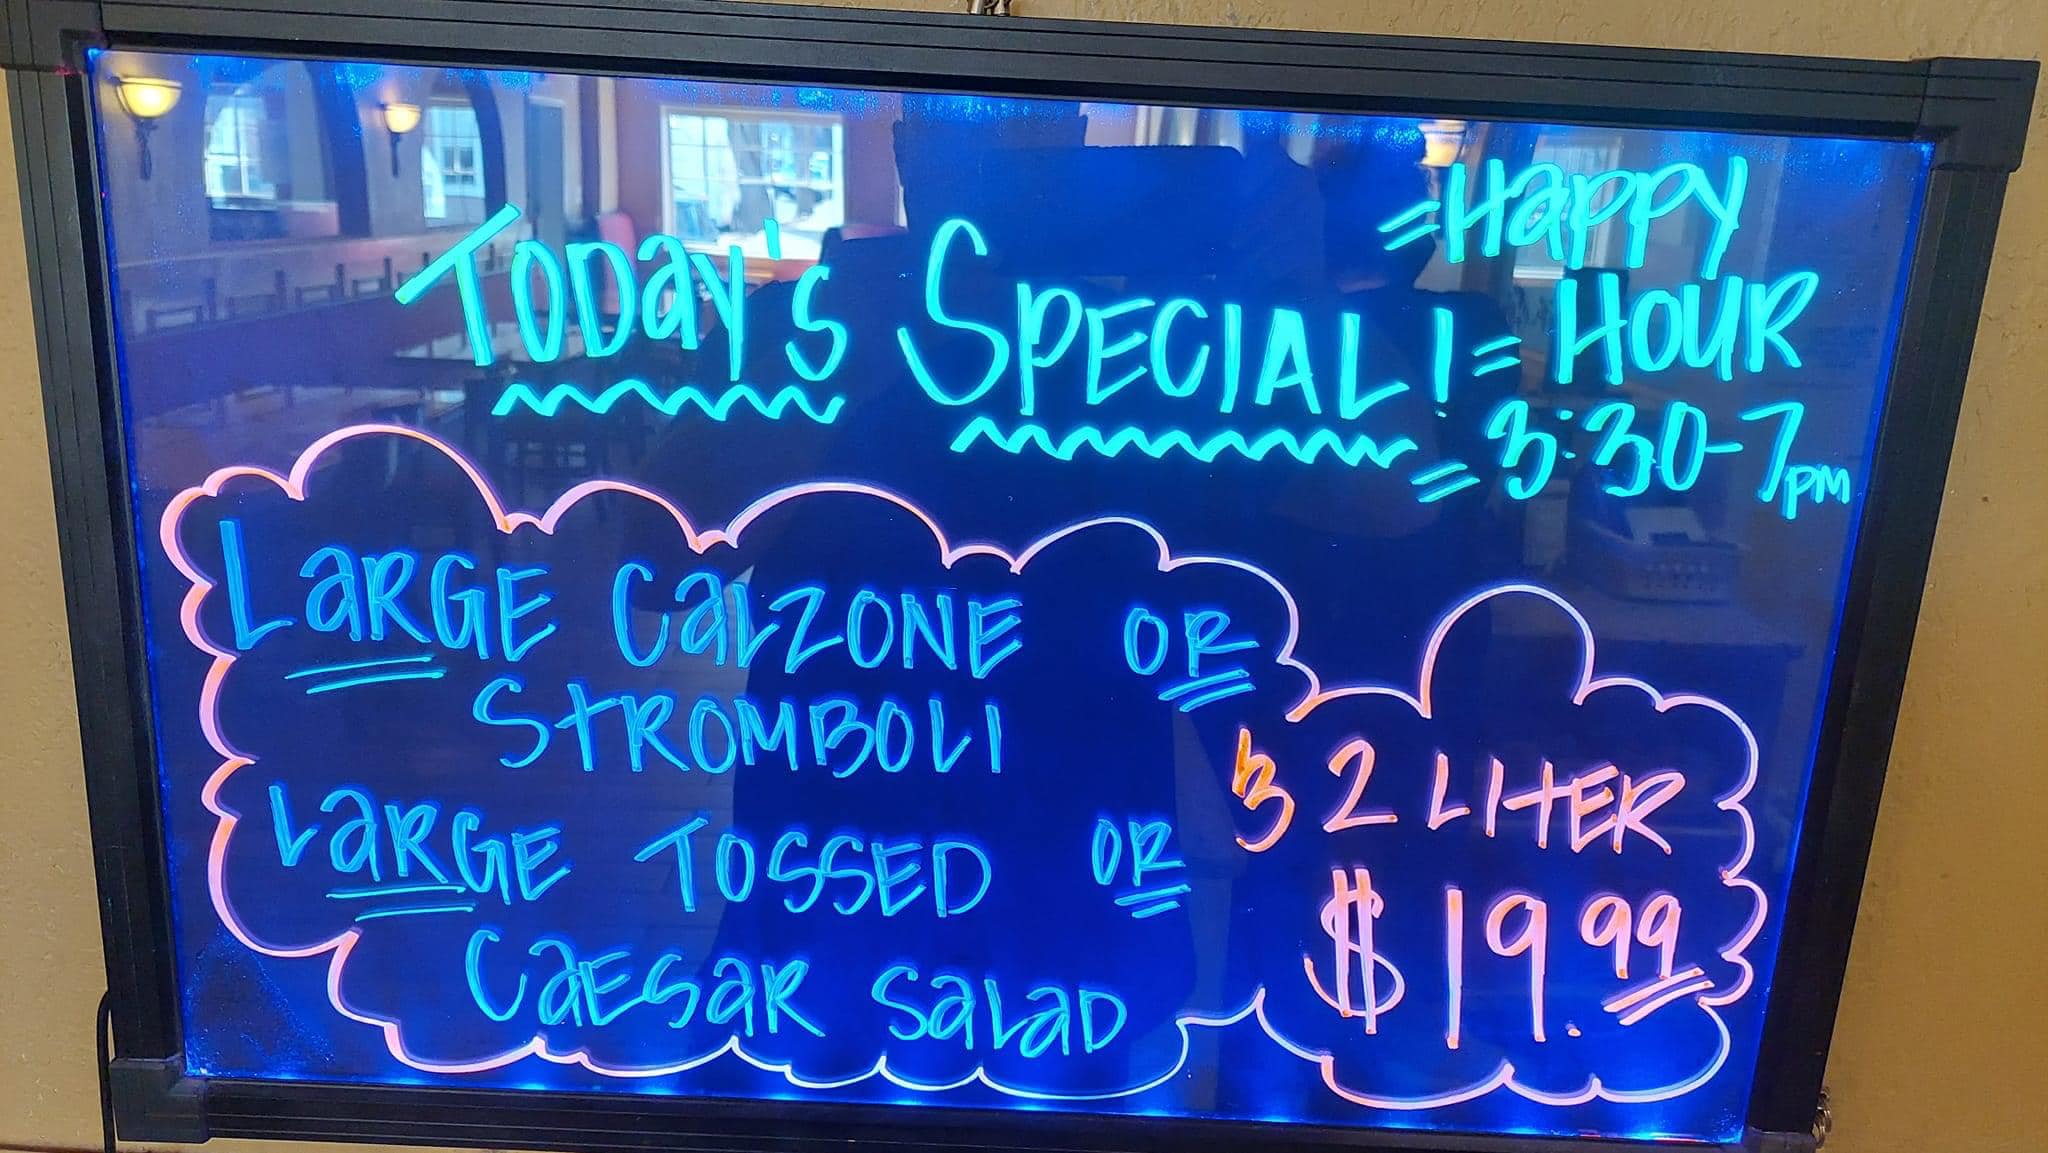 Today's Special!
=Happy
= Hour
= 3:30-7pm
Large Calzone or
Stromboli
Large Tossed or
Caesar Salad
2 Liter
$19.99